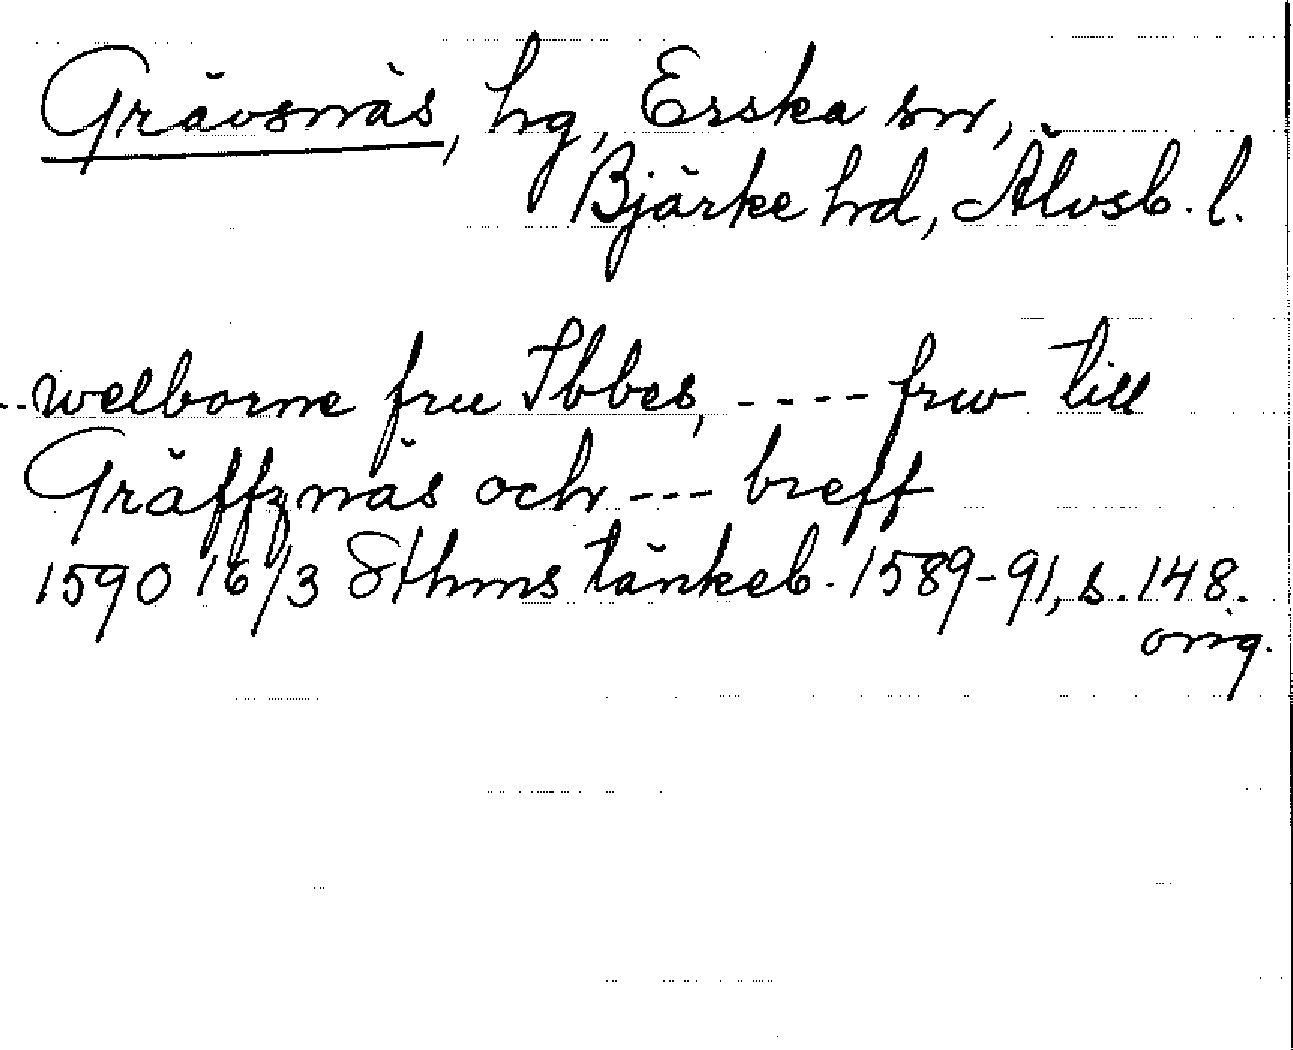 Grävsnäs, hg, Erska sn,
Bjärke hd, Älvsb. l.
--welborne fru Ibbes, ---- frw till
Gräffznäs och --- breff
1590 16/3 Sthms tänkeb. 1589-91, s. 148.
orig.